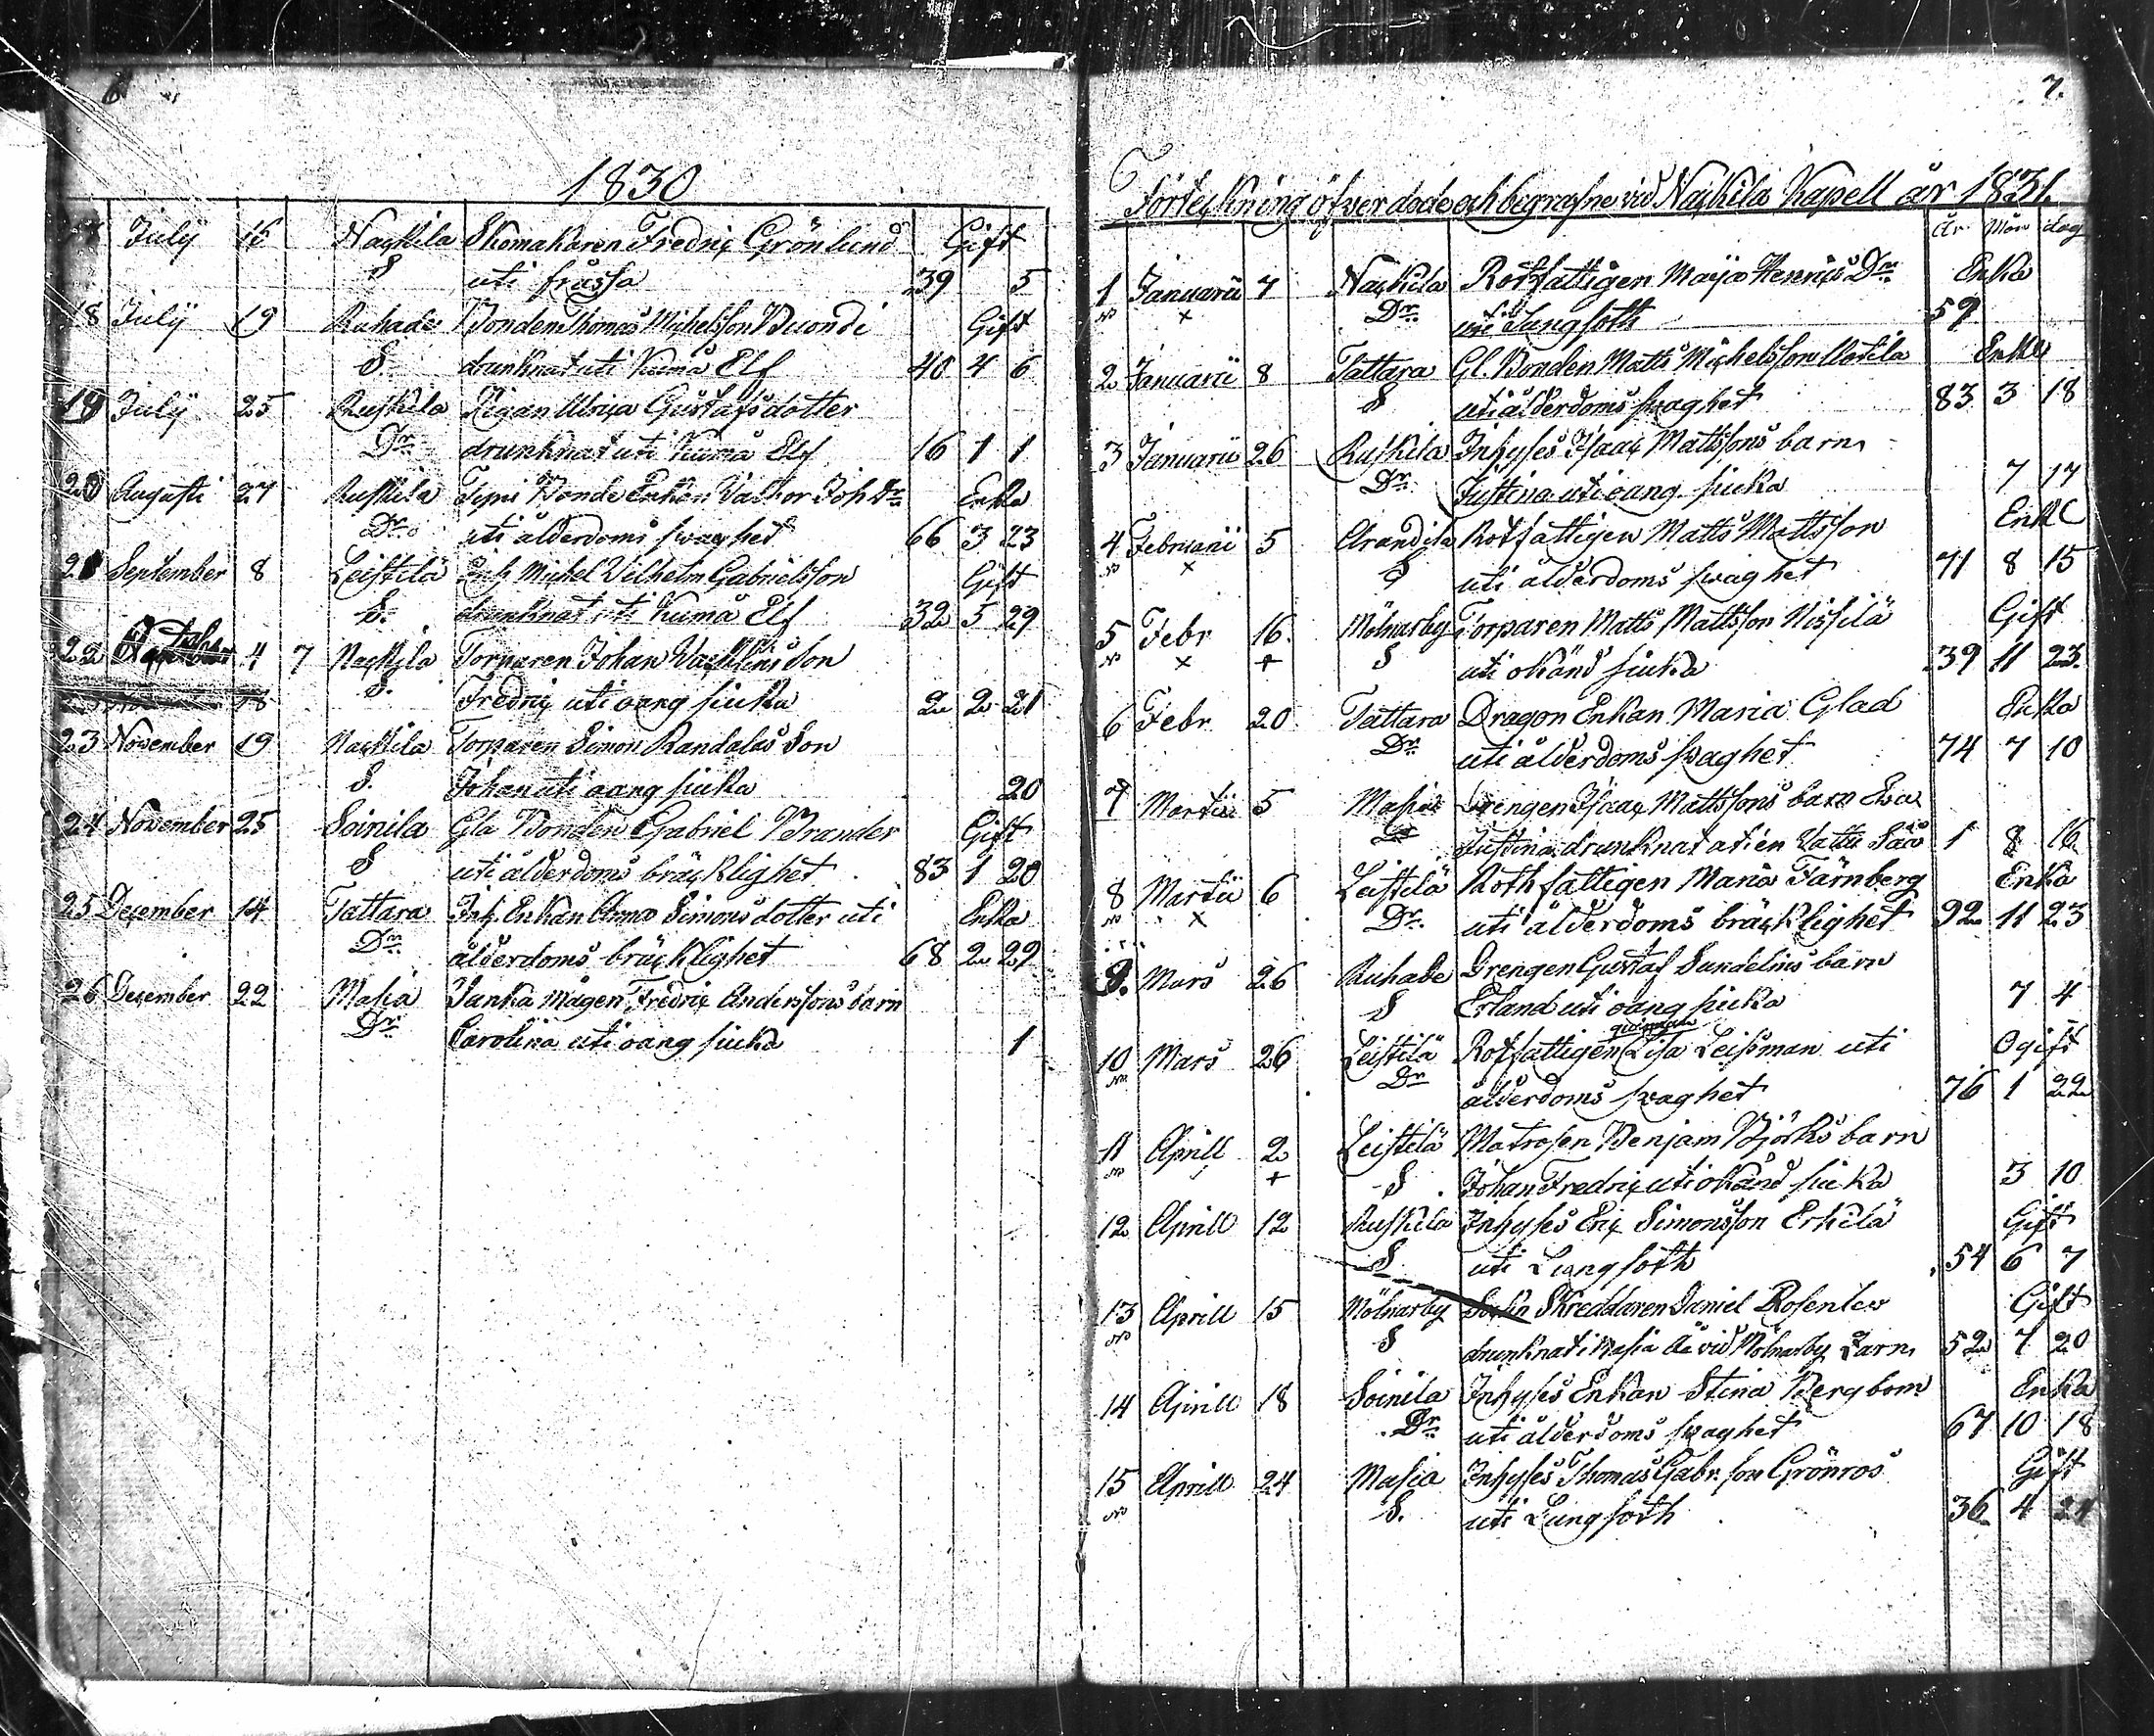 6
1830
July 15 Nackila Skomakaren Fredric Grönlund Gift
S uti frossa 39 5
18 July 19 Ruhade Bonden Thomas Michelsson Buondi Gift
S. drunknat uti Kumå Elf 40 4 6
19 July 25 Ruskila Pigan Ulrica Gustafsdotter
Dr drunknat uti Kumå Elf 16 1 1
20 Augusti 27 Ruskila Bonde Enkan Valbor Joh Dr Enka
Dr uti ålderdoms swaghet 66 3 23
21 September 8 Leistilä Inh Michel Vilhelm Gabrielsson Gift
S. drunknat uti Kumå Elf 32 5 29
22 4 7 Nackila Torparen Johan Son
S. Fredric uti oang siuka 2 2 21
18
23 November 19 Nackila Torparen Simon Randalas Son
S. Johan uti oang siuka 20
24 November 25 Soinila Gla Bonden Gabriel Brander Gift
S uti ålderdoms bräcklighet 83 1 20
25 December 14 Tattara Inh. Enkan Anna Simons dotter uti Enka
Dr ålderdoms bräcklighet 68 2 29
26 December 22 Masia Mågen Fredric Anderssons barn
Dr Carolina uti oang siuka 1
7.
Förteckning öfver döde och begrafne vid Nackila Kapell år 1831.
År Mån dag
1 Januarii 7 Nackila Rotfattigen Maija Henrics Dr Enka
No x Dr uti Lungsoth 59
2 Januarii 8 Tattara Gl. Bonden Matts Michelsson Enkl
S uti ålderdoms swaghet 83 3 18
3 Januarii 26 Ruskila Inhyses Isaac Mattssons barn
Dr Justina uti oang siuka 7 17
4 Februarii 5 Arandila Rotfattigen Matts Mattsson Enkl
No x S uti ålderdoms swaghet 71 8 15
5 Febr 16. Mölnarby Torparen Matts Mattsson Nisilä Gift
No x + S uti okänd siuka 39 11 23.
6 Febr 20 Tattara Dragon Enkan Maria Glad Enka
Dr uti ålderdoms swaghet 74 7 10
7 Martii 5 Masia Drengen Isaac Mattssons barn Eva
Justina drunknat uti en 1 8 16
8 Martii 6 Leistilä Rothfattigen Maria Färnberg Enka
No x Dr. uti ålderdoms bräcklighet 92 11 23
9. Mars 26 Ruhade Drengen Gustaf Sundelins barn
S Erland uti oang siuka 7 4
qwinnan
10 Mars 26 Leistilä Rotfattigen Lisa Leisman uti Ogift
No Dr ålderdoms swaghet 76 1 22
11 Aprill 2 Leistilä Matrosen Benjam Björks barn
No + S Johan Fredric uti okänd siuka 3 10
12 Aprill 12 Ruskila Inhyses Eric Simonsson Erkilä Gift
S uti Lungsoth 54 6 7
13 Aprill 15 Mölnarby Skreddaren Daniel Rosenlew Gift
No S drunknat i Masia Åa vid Mölnarby 52 7 20
14 Aprill 18 Soinila Inhyses Enkan Stina Bergbom Enka
Dr uti ålderdoms swaghet 67 10 18
15 Aprill 24 Masia Inhyses Thomas Gabr. son Grönros Gift
No S. uti Lungsoth 36 4 21